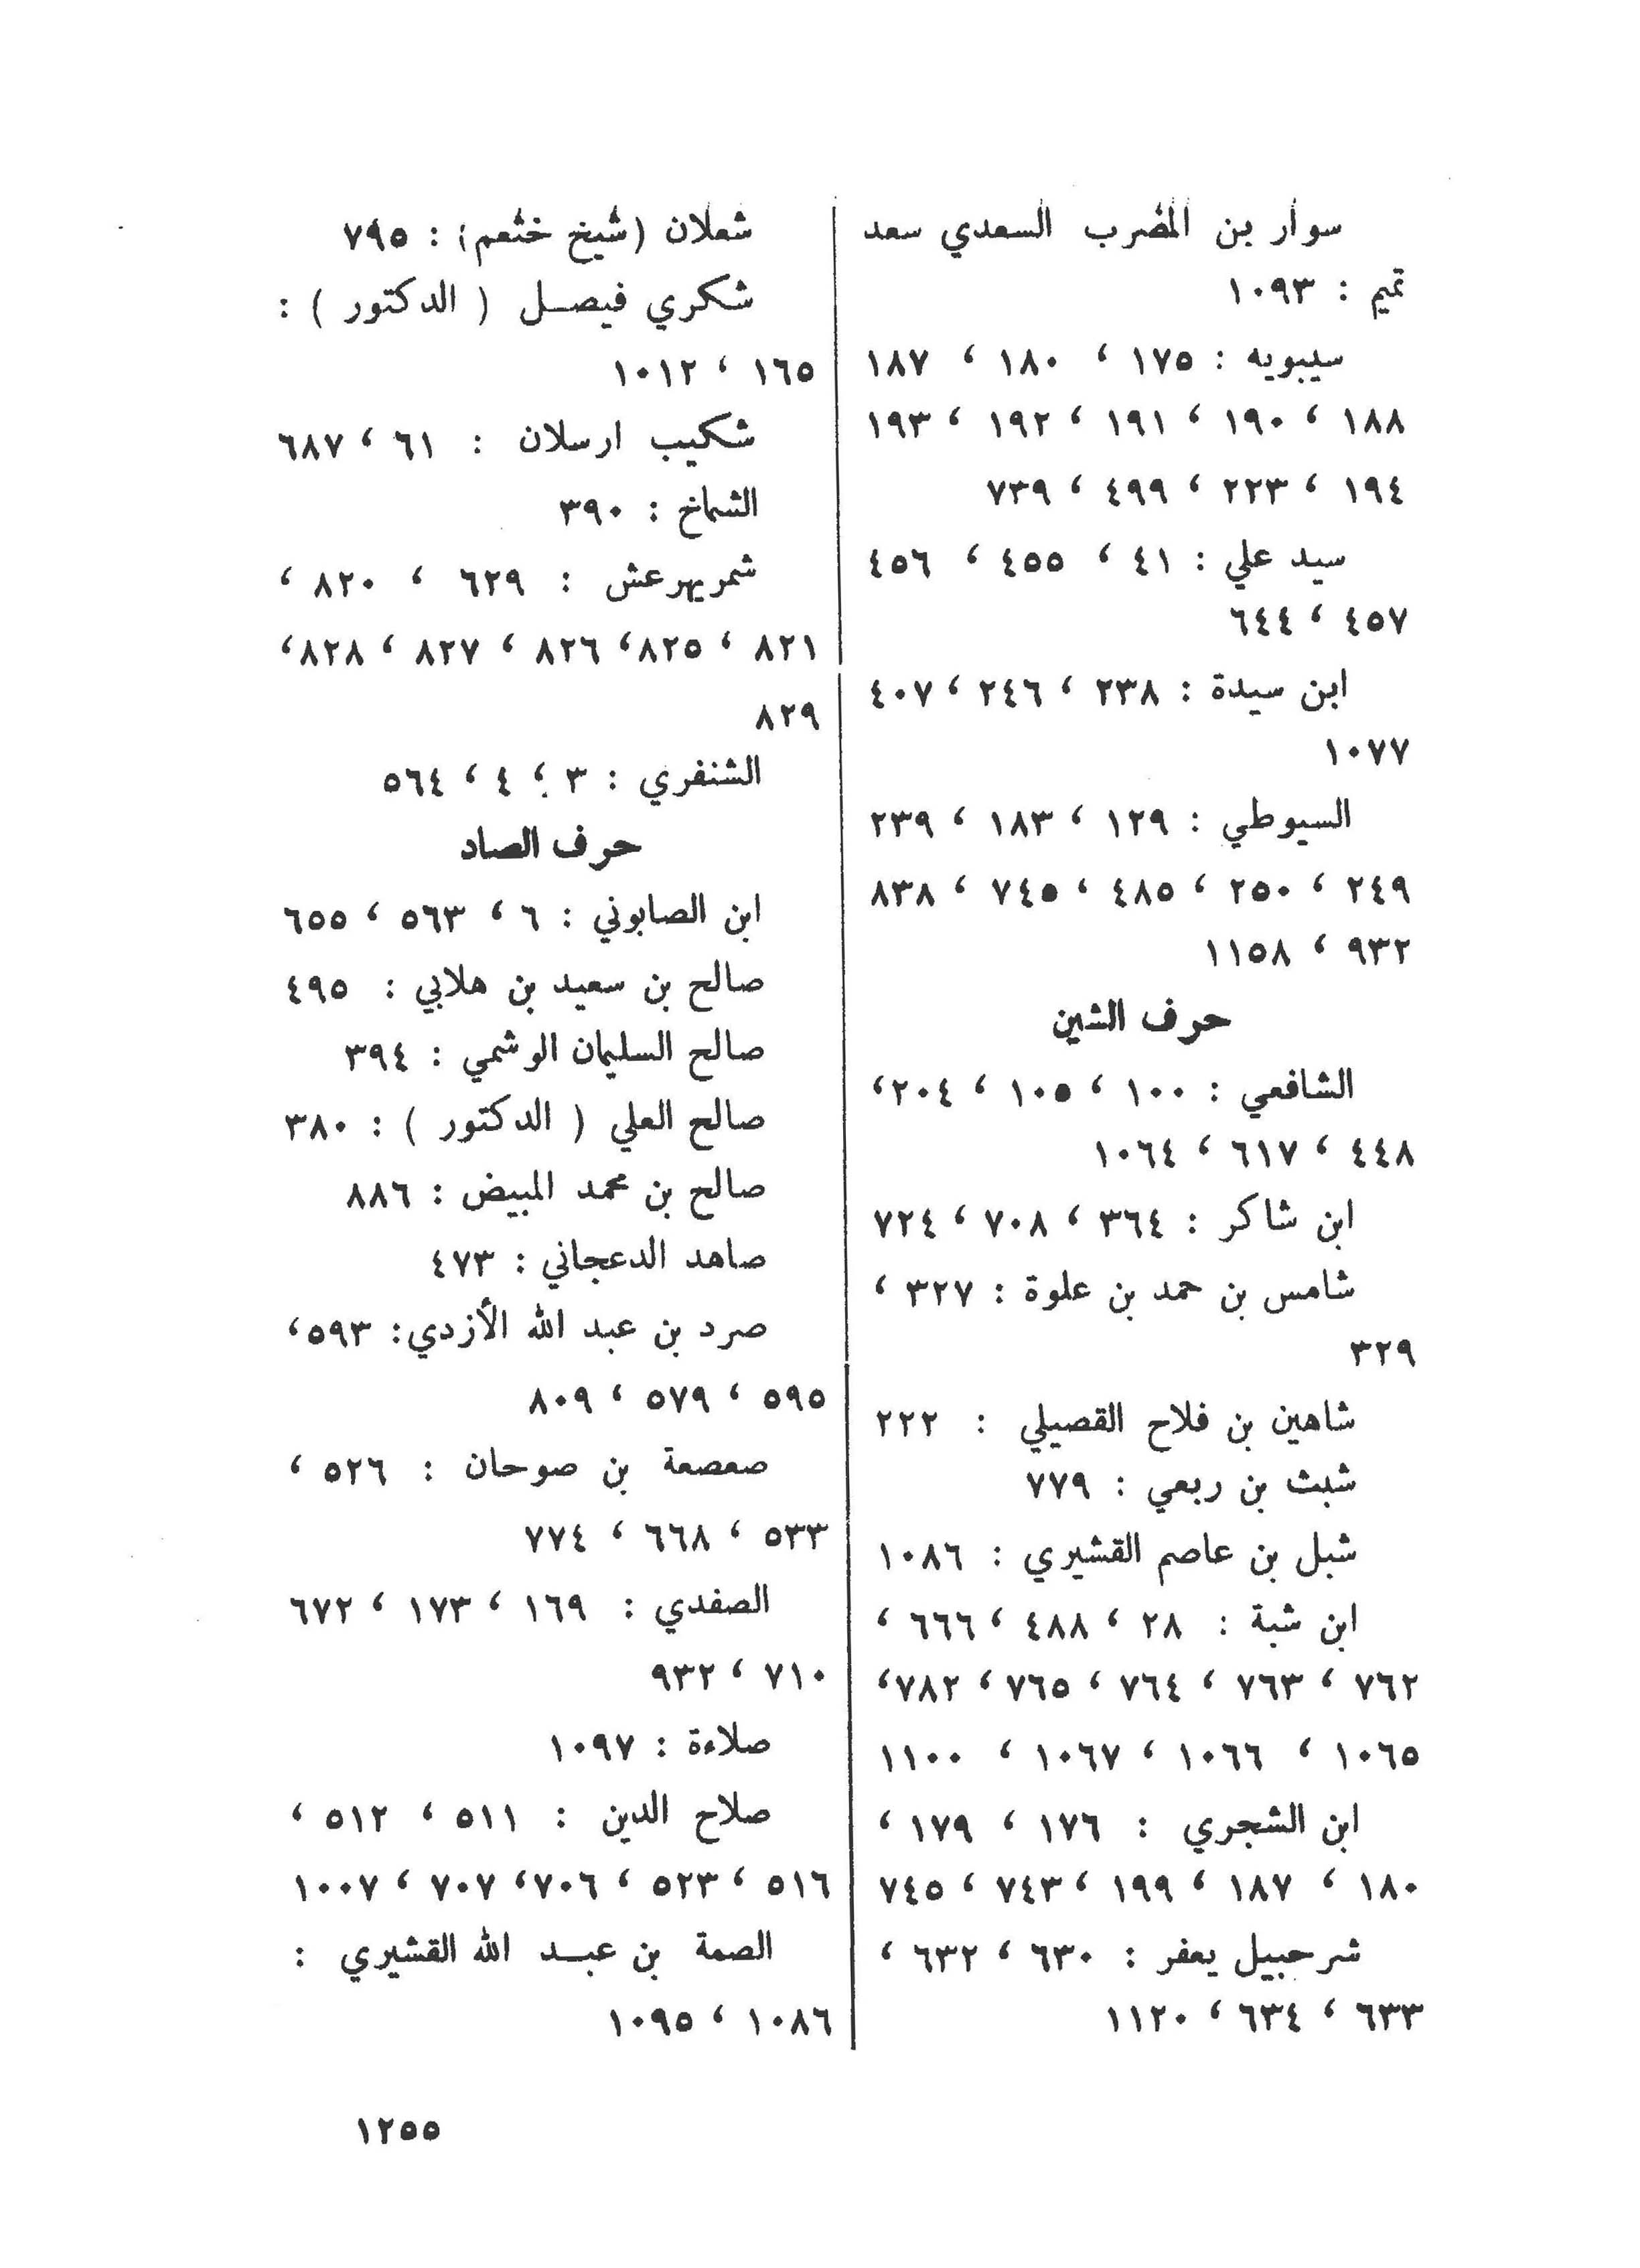 سوار بن المضرب السعدي سعد
تميم : ١٠٩٣
سيبويه : ١٧٥ ، ١٨٠ ، ١٨٧
١٨٨ ، ١٩٠ ، ١٩١ ، ١٩٢ ، ١٩٣
١٩٤ ، ٢٢٣ ، ٤٩٩ ، ٧٣٩
سيد علي : ٤١ ، ٤٥٥ ، ٤٥٦
٤٥٧ ، ٦٤٤
ابن سيدة : ٢٣٨ ، ٢٤٦ ، ٤٠٧
١٠٧٧
السيوطي : ١٢٩ ، ١٨٣ ، ٢٣٩
٢٤٩ ، ٢٥٠ ، ٤٨٥ ، ٧٤٥ ، ٨٣٨
٩٣٢ ، ١١٥٨
حرف الشين
الشافعي : ١٠٠ ، ١٠٥ ، ٢٠٤،
٤٤٨ ، ٦١٧ ، ١٠٦٤
ابن شاكر : ٣٦٤ ، ٧٠٨ ، ٧٢٤
شامس بن حمد بن علوة : ٣٢٧ ،
٣٢٩
شاهين بن فلاح القصيلي : ٢٢٢
شبث بن ربعي : ٧٧٩
شبل بن عاصم القشيري : ١٠٨٦
ابن شبة : ٢٨ ، ٤٨٨ ، ٦٦٦ ،
٧٦٢ ، ٧٦٣ ، ٧٦٤ ، ٧٦٥ ، ٧٨٢،
١٠٦٥ ، ١٠٦٦ ، ١٠٦٧ ، ١١٠٠
ابن الشجري : ١٧٦ ، ١٧٩ ،
١٨٠ ، ١٨٧ ، ١٩٩ ، ٧٤٣ ، ٧٤٥
شرحبيل يعفر : ٦٣٠ ، ٦٣٢ ،
٦٣٣ ، ٦٣٤ ، ١١٢٠
شعلان (شيخ خثعم) : ٧٩٥
شكري فيصل ( الدكتور ) :
١٦٥ ، ١٠١٢
شكيب ارسلان : ٦١ ، ٦٨٧
الشماخ : ٣٩٠
شمريهرعش : ٦٢٩ ، ٨٢٠ ،
٨٢١ ، ٨٢٥، ٨٢٦ ، ٨٢٧ ، ٨٢٨،
٨٢٩
الشنفري : ٣ ، ٤ ، ٥٦٤
حرف الصاد
ابن الصابوني : ٦ ، ٥٦٣ ، ٦٥٥
صالح بن سعيد بن هلابي : ٤٩٥
صالح السليمان الوشمي : ٣٩٤
صالح العلي ( الدكتور ) : ٣٨٠
صالح بن محمد المبيض : ٨٨٦
صاهد الدعجاني : ٤٧٣
صرد بن عبد الله الأزدي: ٥٩٣،
٥٩٥ ، ٥٧٩ ، ٨٠٩
صعصعة بن صوحان : ٥٢٦ ،
٥٣٣ ، ٦٦٨ ، ٧٧٤
الصفدي : ١٦٩ ، ١٧٣ ، ٦٧٢
٧١٠ ، ٩٣٢
صلاءة : ١٠٩٧
صلاح الدين : ٥١١ ، ٥١٢ ،
٥١٦ ، ٥٢٣ ، ٧٠٦، ٧٠٧ ، ١٠٠٧
الصمة بن عبد الله القشيري :
١٠٨٦ ، ١٠٩٥
١٢٥٥